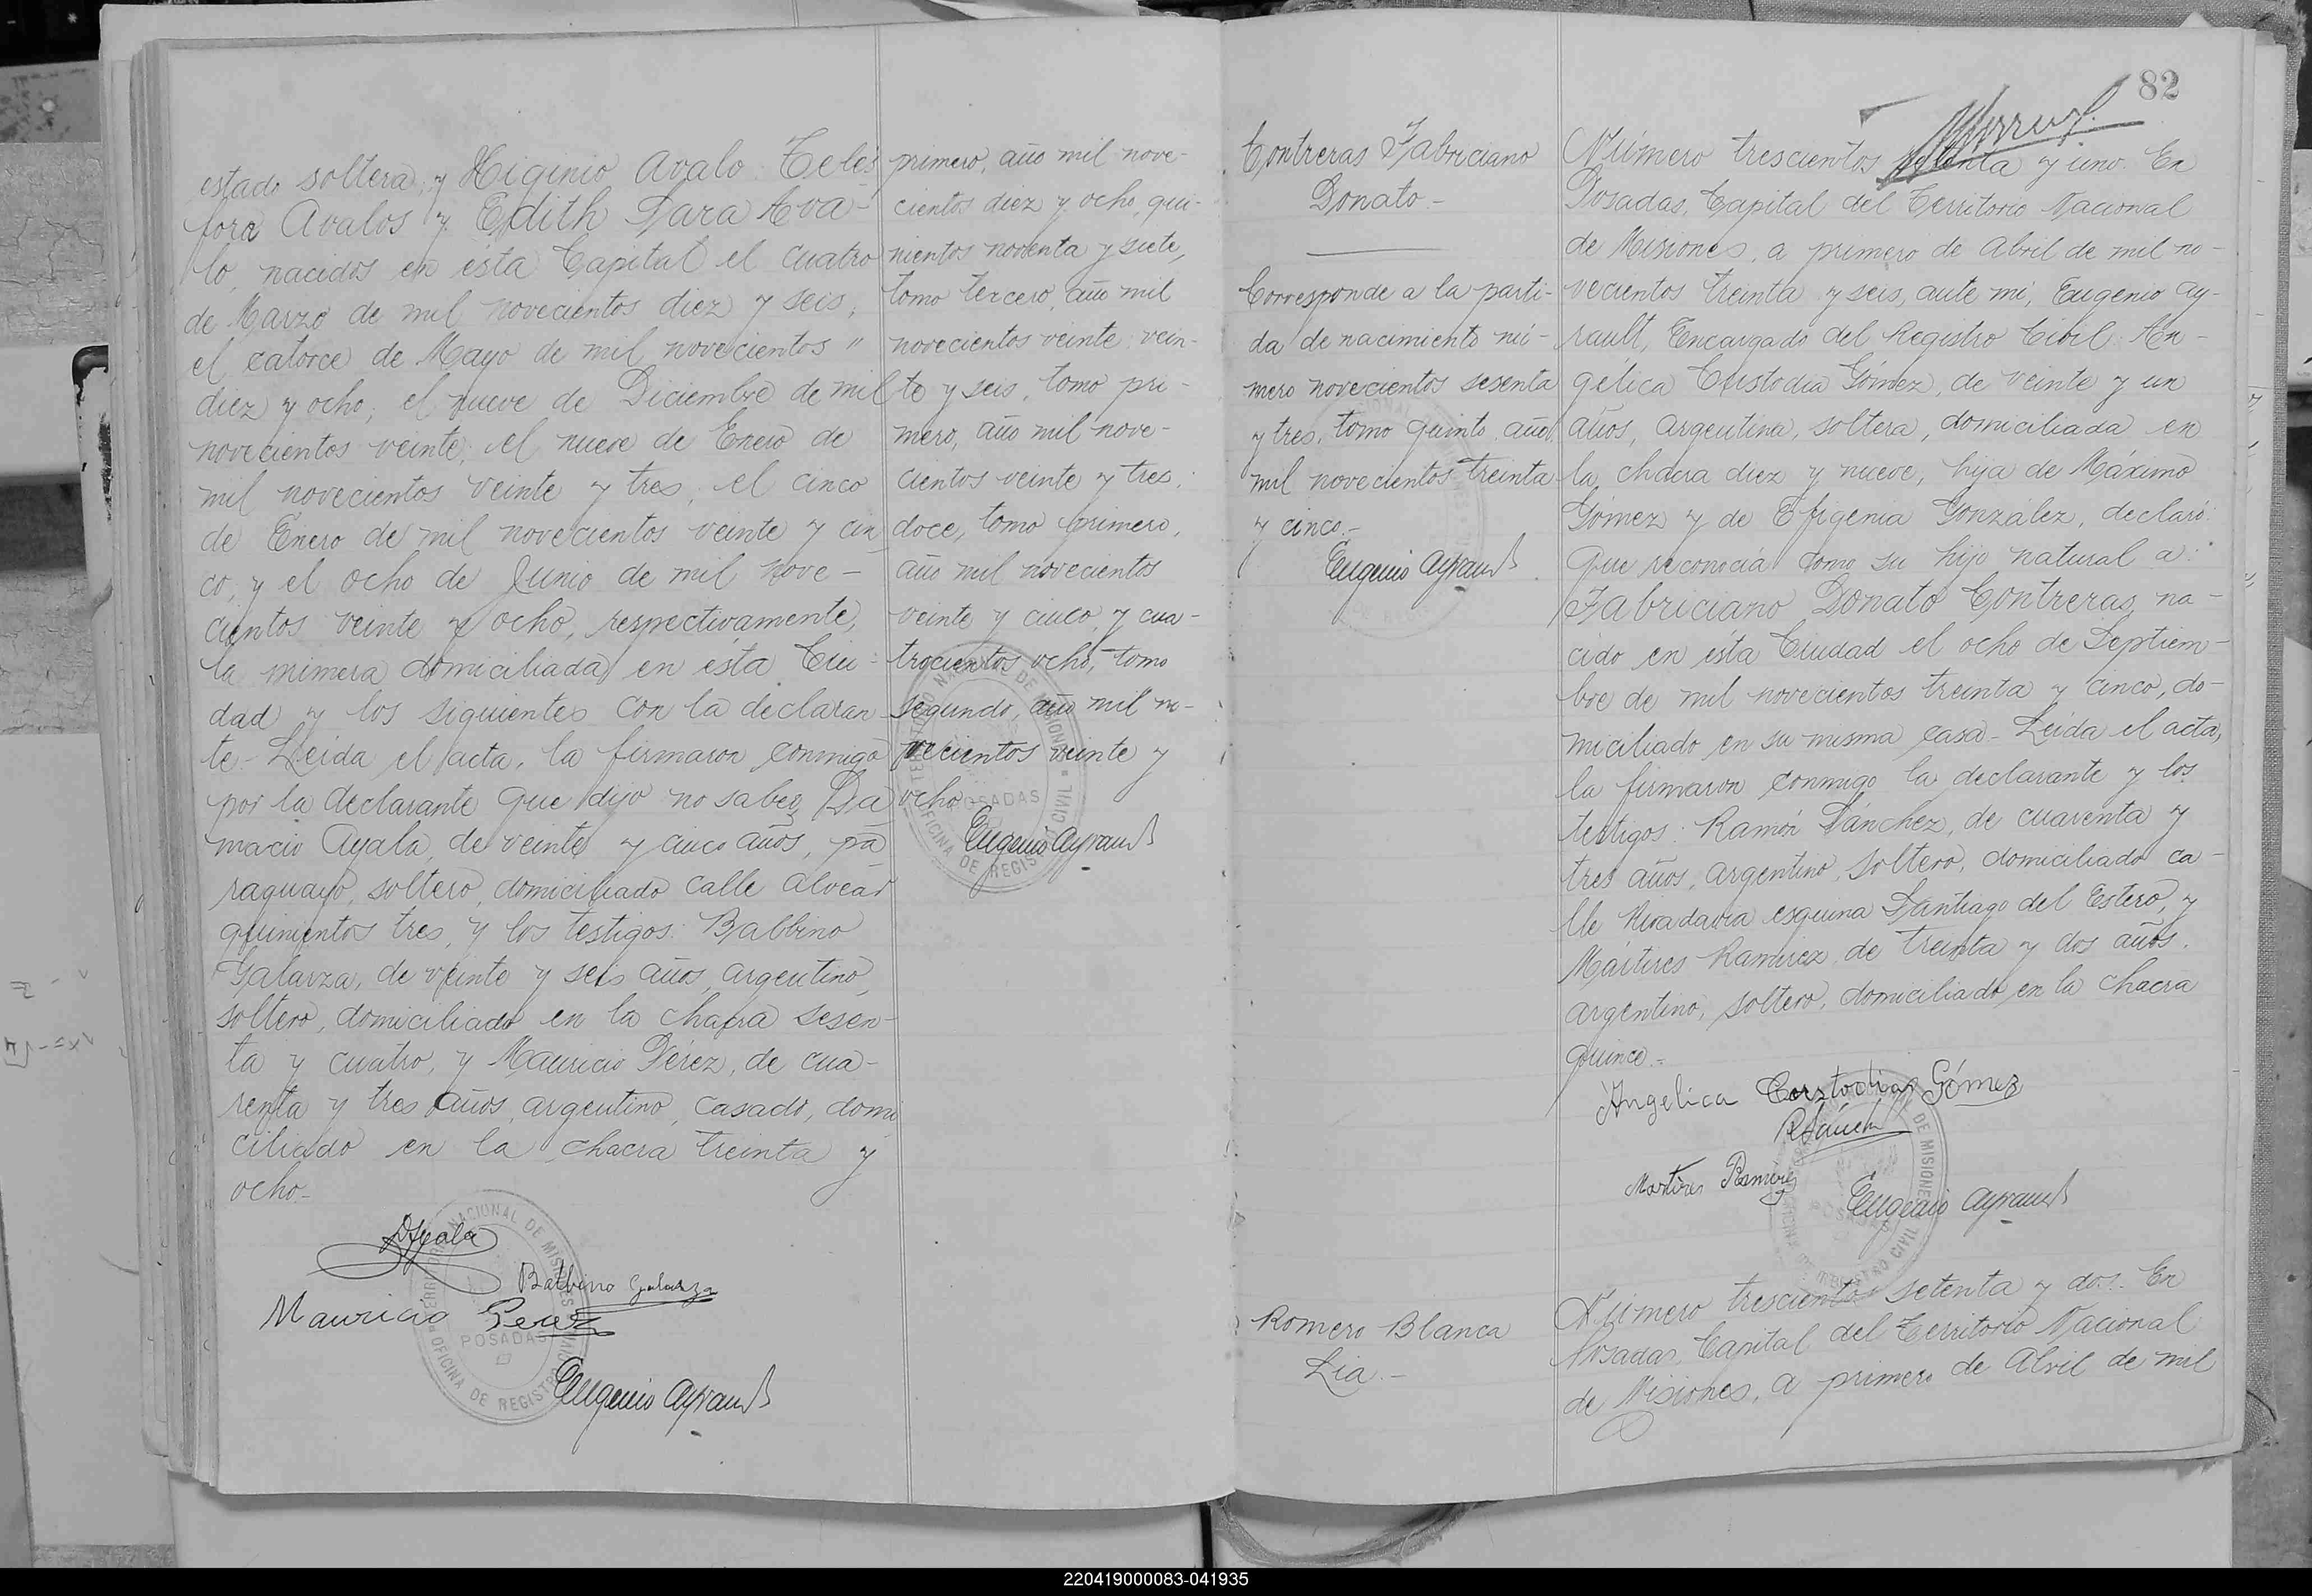 estado soltera, y Higinio Avalo Teles
fora Avalos y Edith Sara Ava-
lo, nacidos en ésta Capital el cuatro
de Marzo de mil novecientos diez y seis,
el catorce de Mayo de mil novecientos "
diez y ocho, el nueve de Diciembre de mil
novecientos veinte, el nueve de Enero de
mil novecientos veinte y tres, el cinco
de Enero de mil novecientos veinte y cin
co, y el ocho de Junio de mil nove-
cientos veinte y ocho, respectivamente,
la mimera domiciliada en esta Ciu-
dad y los siguientes con la declaran-
te- Leida el acta, la firmaron conmigo
por la declarante que dijo no saber, Da
macio Ayala, de veinte y cinco años, pa
raguayo, soltero, domiciliado calle Alvear
quinientos tres, y los testigos: Balbino
Galarza, de veinte y seis años, argentino,
soltero, domiciliado en la chacra sesen-
ta y cuatro, y Mauricio Pérez, de cua-
renta y tres años, argentino, casado, domi
ciliado en la chacra treinta y
ocho-
DAyala
Balbino Galarza
Mauricio Perez
Eugenio Ayrault
TERRITORIO NACIONAL DE MISIONES
POSADAS
OFICINA DE REGISTRO CIVIL
primero, año mil nove-
cientos diez y ocho, qui-
nientos noventa y siete,
tomo tercero, año mil
novecientos veinte, vein-
te y seis, tomo pri-
mero, año mil nove-
cientos veinte y tres;
doce, tomo primero,
año mil novecientos
veinte y cinco, y cua-
trocientos ocho, tomo
segundo, año mil no-
vecientos veinte y
ocho-
Eugenio Ayrault
TERRITORIO NACIONAL DE MISIONES
POSADAS
OFICINA DE REGISTRO CIVIL
82
Contreras Fabriciano
Donato-
Corresponde a la parti-
da de nacimiento nú-
mero novecientos sesenta
y tres, tomo quinto, año
mil novecientos treinta
y cinco.-
Eugenio Ayrault
Número trescientos setenta y uno. En
Posadas, Capital del Territorio Nacional
de Misiones, a primero de Abril de mil no-
vecientos treinta y seis, ante mí, Eugenio Ay-
rault, Encargado del Registro Civil: An-
gélica Custodia Gómez, de veinte y un
años, argentina, soltera, domiciliada en
la chacra diez y nueve, hija de Máximo
Gómez y de Efigenia González, declaró:
Que reconocía como su hijo natural a:
Fabriciano Donato Contreras, na-
cido en ésta Ciudad el ocho de Septiem-
bre de mil novecientos treinta y cinco, do-
miciliado en su misma casa- Leida el acta,
la firmaron conmigo la declarante y los
testigos: Ramón Sánchez, de cuarenta y
tres años, argentino, soltero, domiciliado ca-
lle Rivadavia esquina Santiago del Estero, y
Mártires Ramirez, de treinta y dos años,
argentino, soltero, domiciliado en la chacra
quince.-
Angelica Custodia Gómez
RSánchez
Martires Ramirez
Eugenio Ayrault
TERRITORIO NACIONAL DE MISIONES
POSADAS
OFICINA DE REGISTRO CIVIL
Romero Blanca
Lia.-
Número trescientos setenta y dos. En
Posadas, Capital del Territorio Nacional
de Misiones, a primero de Abril de mil
220419000083-041935